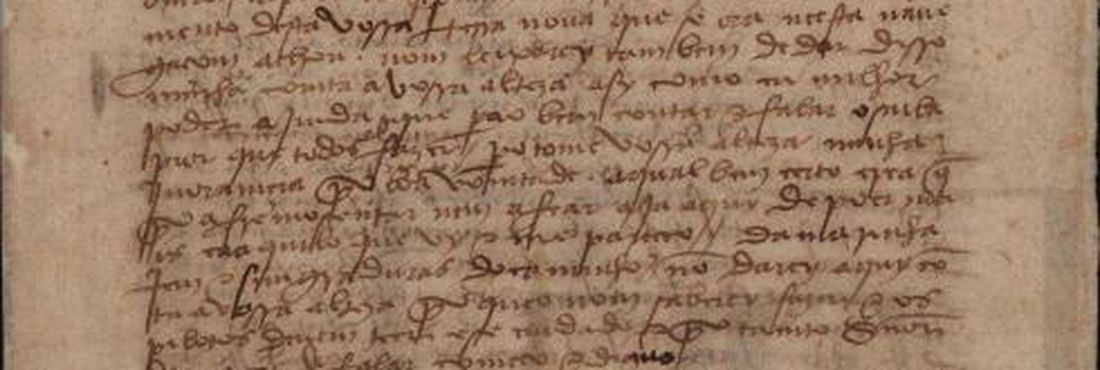 mento desta vossa terra noua que se ora neesta naue
gaçom achou. nom leixarey tambem de dar disso
minha comta a vossa alteza asy como eu milhor
poder ajmda que pera o bem contar e falar o saiba
pior que todos fazer. pero tome vossa alteza minha j
noramçia por boa vomtade. aqual bem çerto crea q̃
por afremosentar nem afear aja aquy de poer ma
is caaquilo que vy e me pareçeo. / da marinha
jem e simgraduras do caminho nõ darey aquy cõ
ta a vossa alteza por queo nom saberey fazer e os
pilotos deuem teer ese cuidado e por tanto Señor
falar começo e diguo